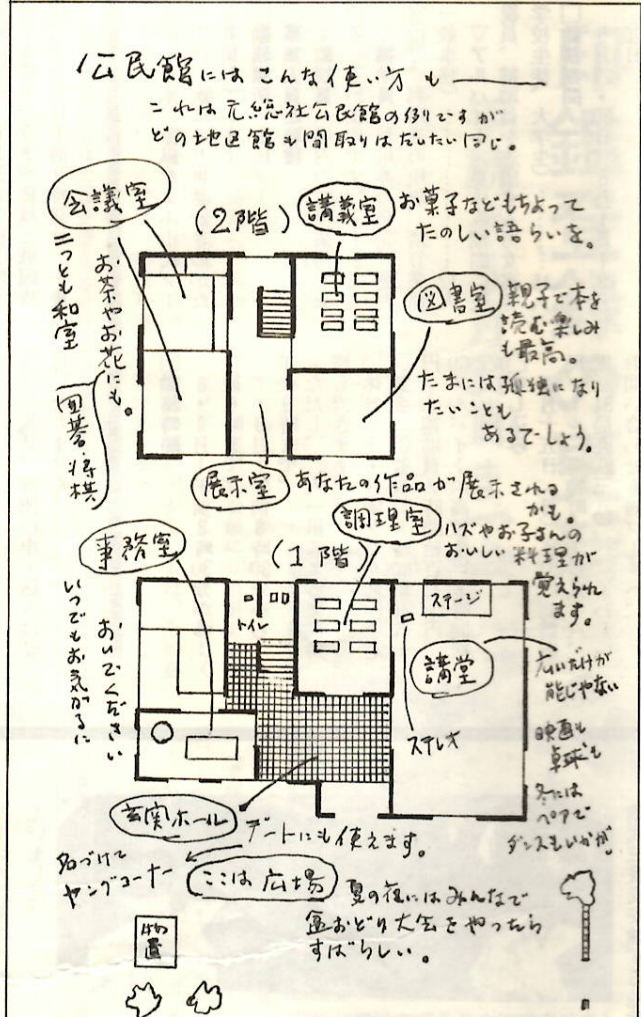 公民館にはこんな使い方も――
これは元総社公民館の例ですが
どの地区館も間取りはだいたい同じ。
会議室
二つとも和室
お茶やお花にも。
囲碁・将棋
(2階)
講義室
お菓子などもちよって
たのしい語らいを。
図書室
親子で本を
読む楽しみ
も最高。
たまには孤独になり
たいことも
あるでしょう。
展示室
あなたの作品が展示される
かも。
事務室
いつでもお気がるに
おいでください
(1階)
調理室
ハズやお子さんの
おいしい料理が
覚えられ
ます。
トイレ
ステージ
講堂
ステレオ
広いだけが
能じゃない
映画も
卓球も
冬には
ペアで
ダンスもいかが
玄関ホール
デートにも使えます。
名づけて
ヤングコーナー
ここは広場
夏の夜にはみんなで
盆おどり大会をやったら
すばらしい。
物置